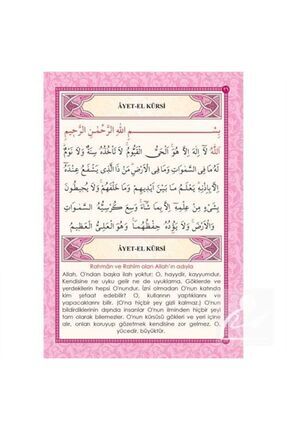 ٢٦
ÂYET-EL KÜRSİ
بِسْمِ اللّٰهِ الرَّحْمٰنِ الرَّحِيمِ
اَللّٰهُ لَٓا اِلٰهَ اِلَّا هُوَۚ اَلْحَيُّ الْقَيُّومُۚ لَا تَأْخُذُهُ سِنَةٌ وَلَا نَوْمٌۜ
لَهُ مَا فِي السَّمٰوَاتِ وَمَا فِي الْاَرْضِۜ مَنْ ذَا الَّذ۪ي يَشْفَعُ عِنْدَهُٓ
اِلَّا بِاِذْنِه۪ۜ يَعْلَمُ مَا بَيْنَ اَيْد۪يهِمْ وَمَا خَلْفَهُمْۚ وَلَا يُح۪يطُونَ
بِشَيْءٍ مِنْ عِلْمِه۪ٓ اِلَّا بِمَا شَٓاءَۚ وَسِعَ كُرْسِيُّهُ السَّمٰوَاتِ
وَالْاَرْضَۚ وَلَا يَؤُ۫دُهُ حِفْظُهُمَاۚ وَهُوَ الْعَلِيُّ الْعَظ۪يمُ
ÂYET-EL KÜRSİ
Rahmân ve Rahîm olan Allah'ın adıyla
Allah, O'ndan başka ilah yoktur; O, hayydir, kayyumdur.
Kendisine ne uyku gelir ne de uyuklama. Göklerde ve
yerdekilerin hepsi O'nundur. İzni olmadan O'nun katında
kim şefaat edebilir? O, kullarının yaptıklarını ve
yapacaklarını bilir. (O'na hiçbir şey gizli kalmaz.) O'nun
bildirdiklerinin dışında insanlar O'nun ilminden hiçbir şeyi
tam olarak bilemezler. O'nun kürsüsü gökleri ve yeri içine
alır, onları koruyup gözetmek kendisine zor gelmez. O,
yücedir, büyüktür.